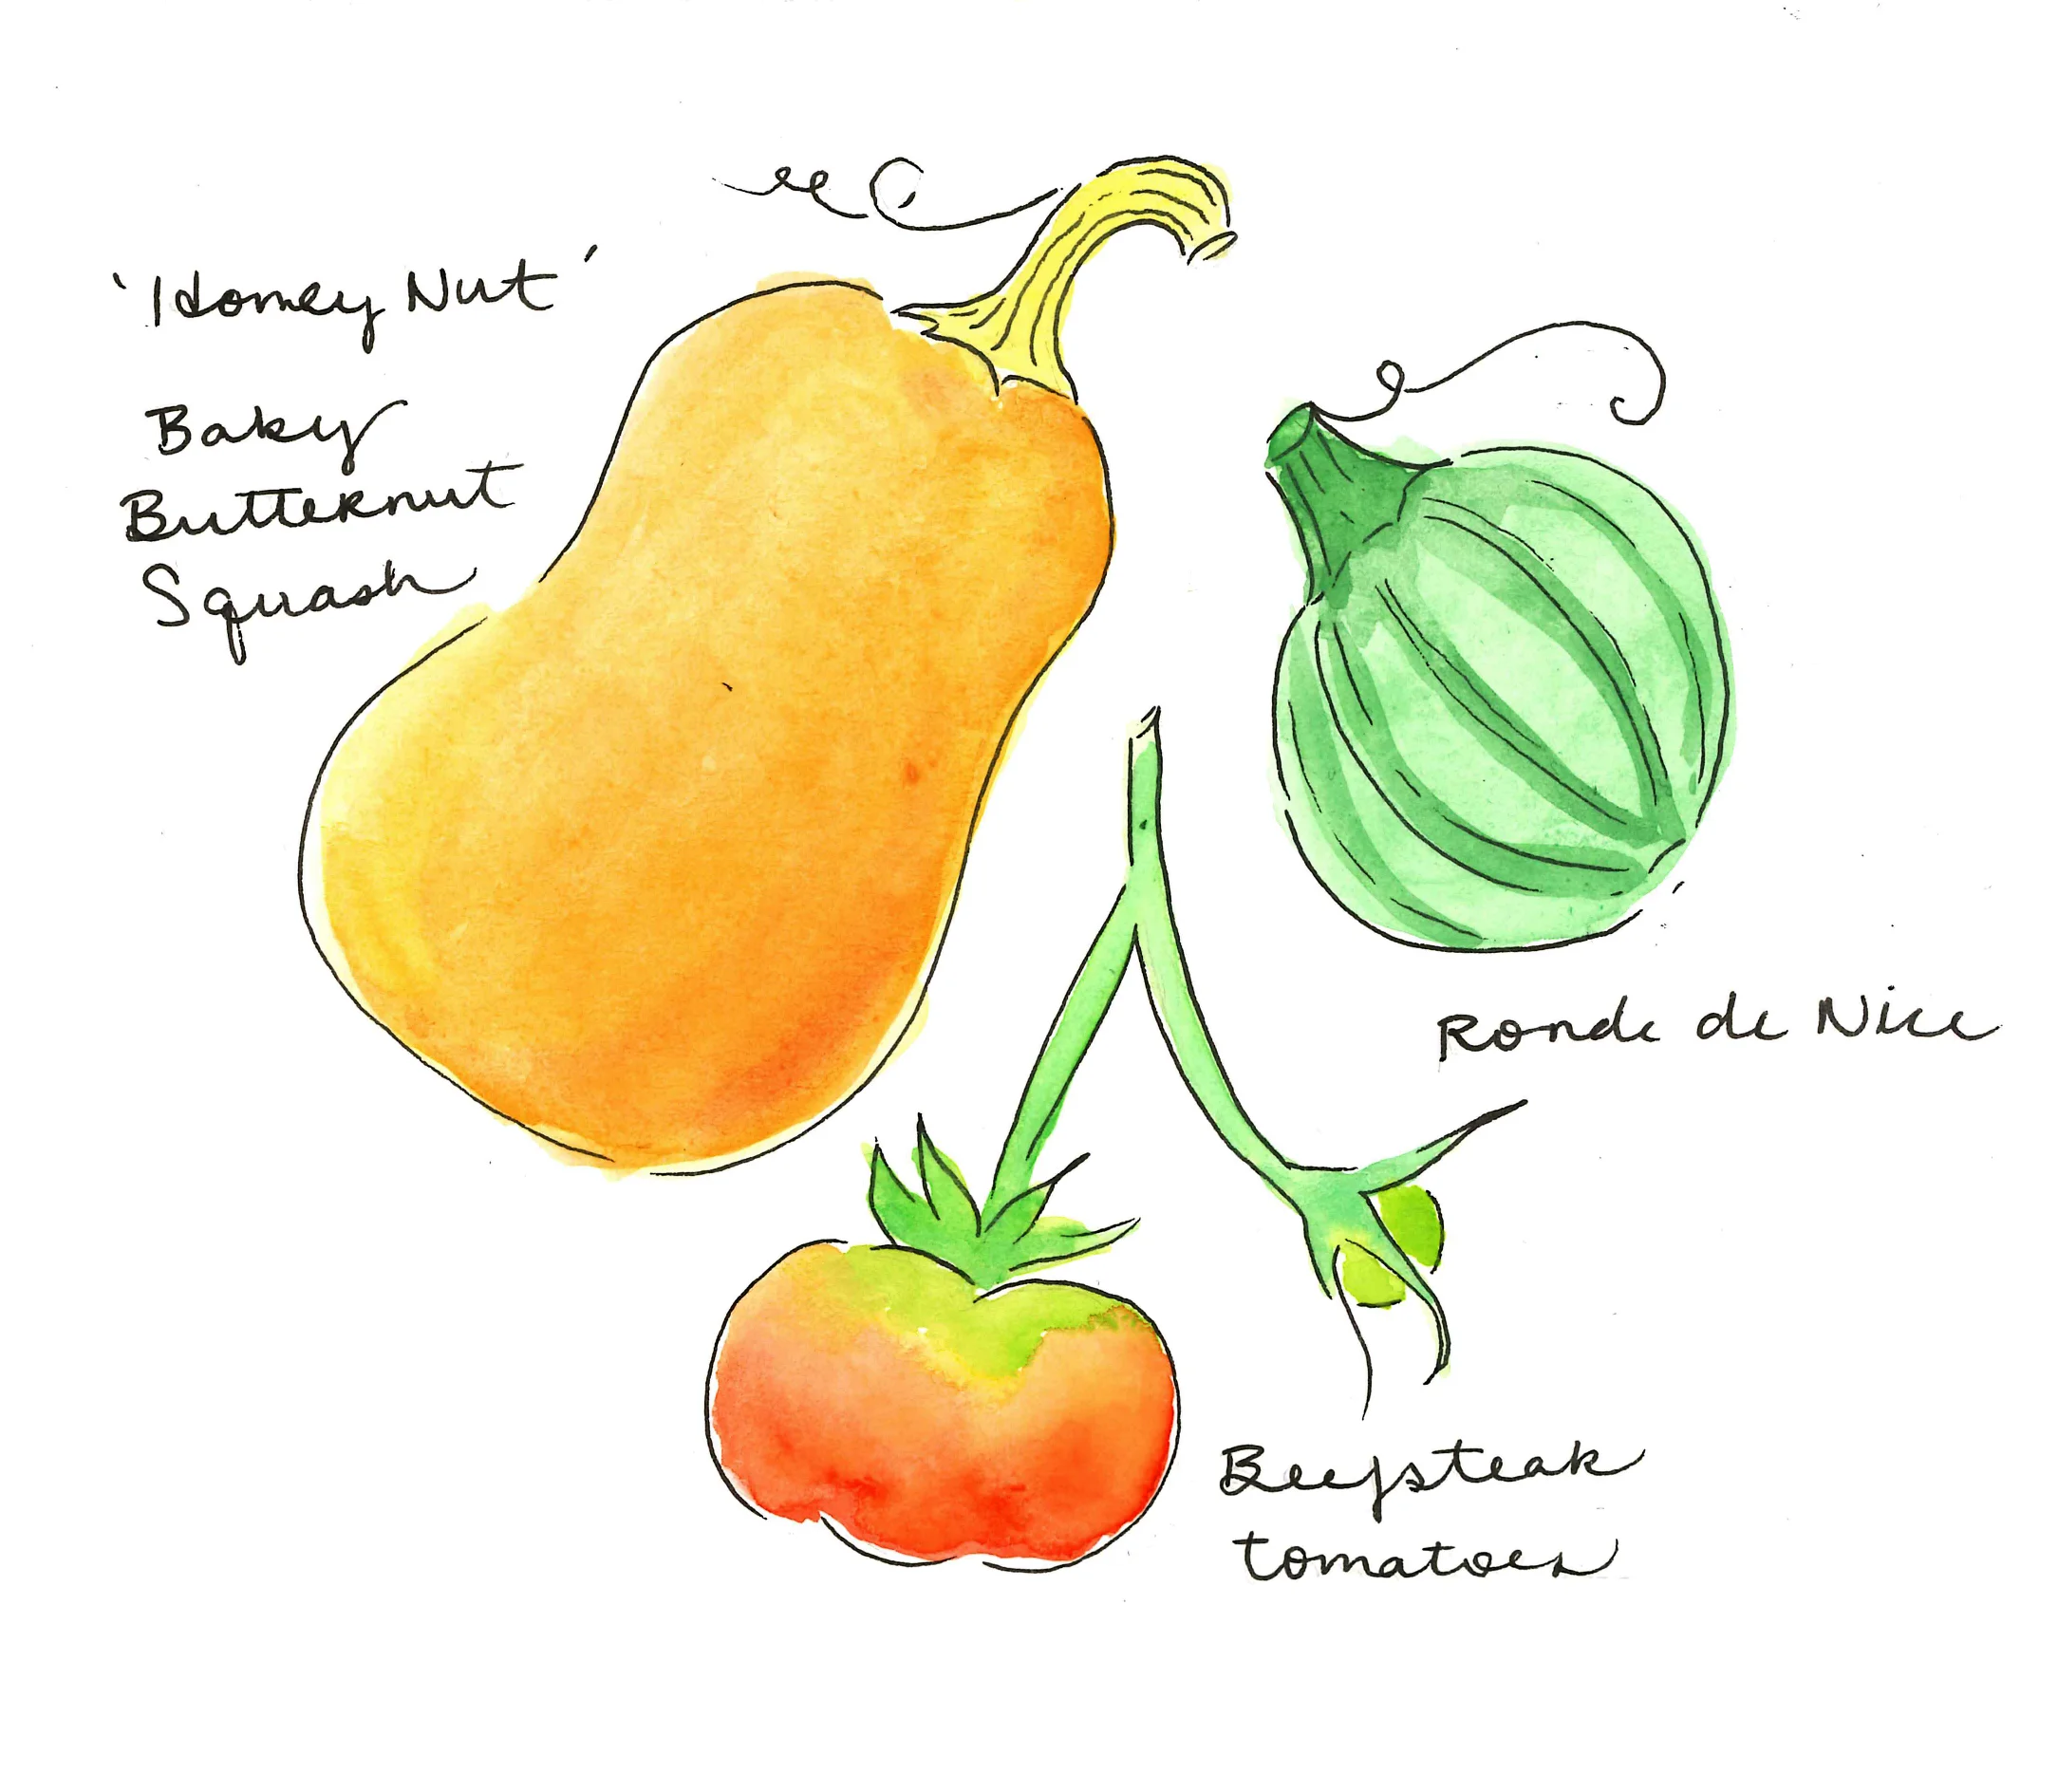 'Honey Nut'
Baby
Butternut
Squash
Ronde de Nice
Beefsteak
tomatoes